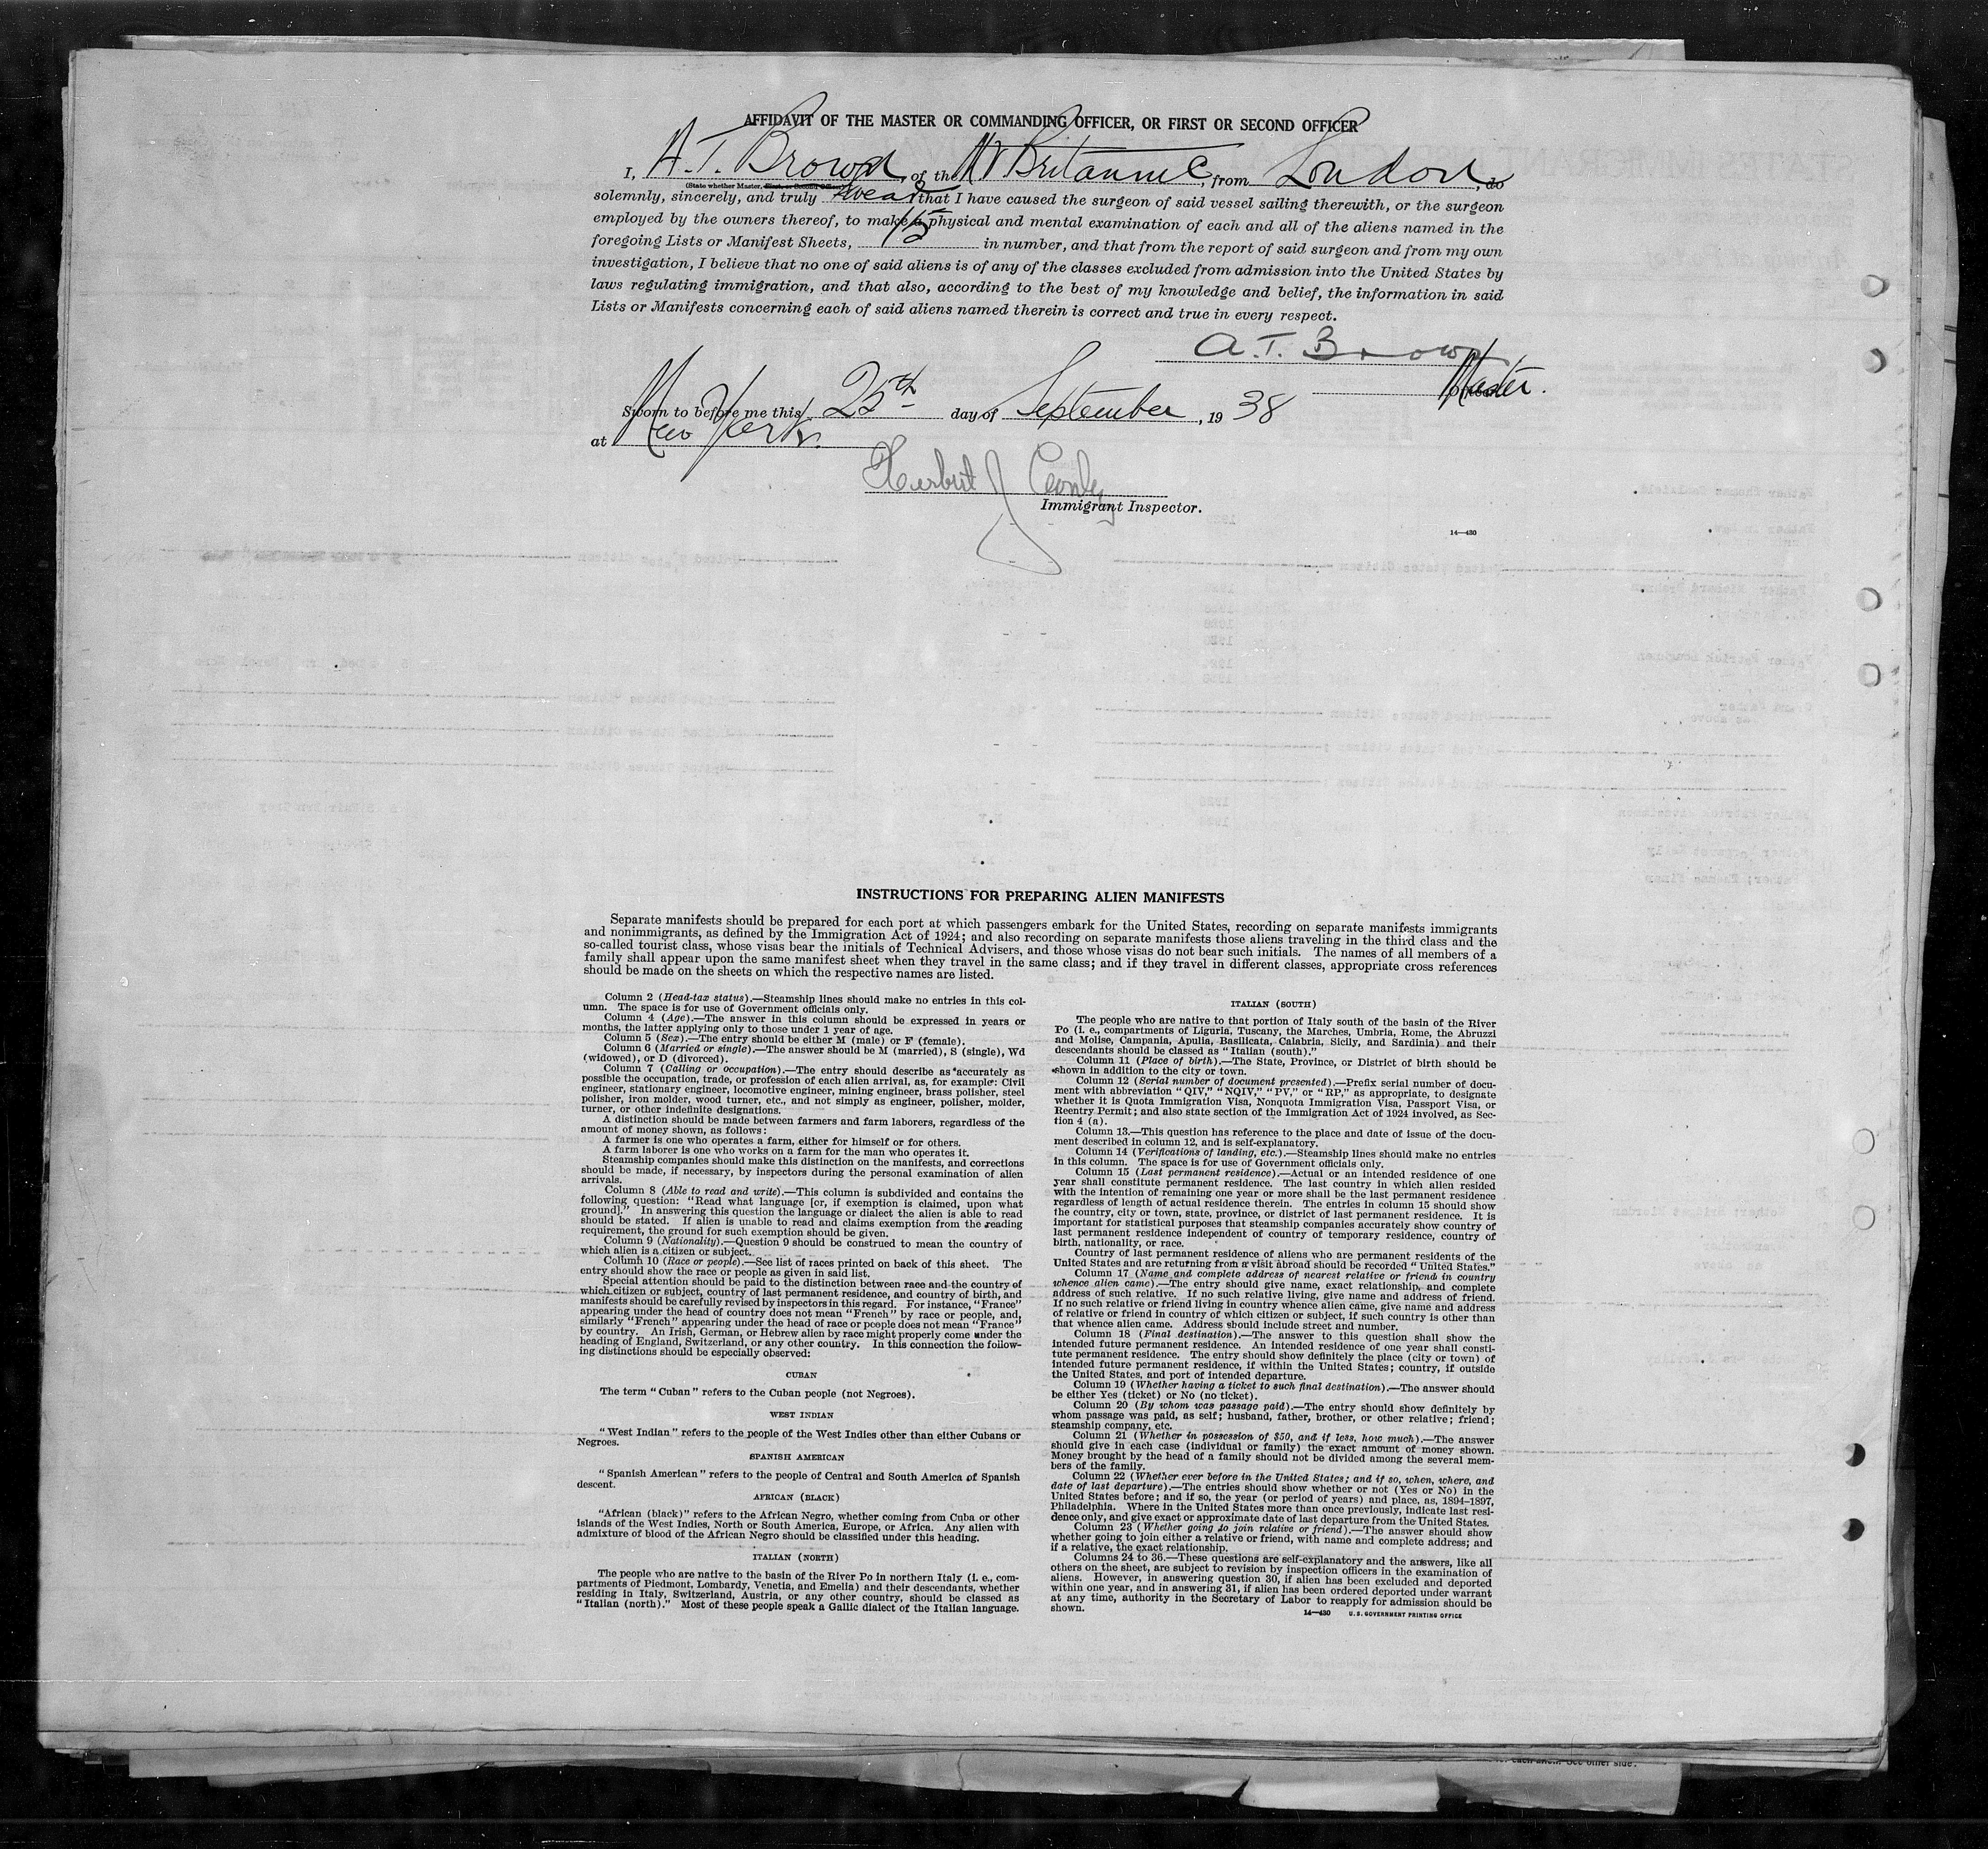 AFFIDAVIT OF THE MASTER OR COMMANDING OFFICER, OR FIRST OR SECOND OFFICER
I, A. T. Brown, of the MV Britannic, from London, do
(State whether Master, First, or Second Officer)
solemnly, sincerely, and truly swear that I have caused the surgeon of said vessel sailing therewith, or the surgeon
employed by the owners thereof, to make a physical and mental examination of each and all of the aliens named in the
foregoing Lists or Manifest Sheets, 15 in number, and that from the report of said surgeon and from my own
investigation, I believe that no one of said aliens is of any of the classes excluded from admission into the United States by
laws regulating immigration, and that also, according to the best of my knowledge and belief, the information in said
Lists or Manifests concerning each of said aliens named therein is correct and true in every respect.
A. T. Brown
Master.
Sworn to before me this 25th day of September, 1938
at New York.
Herbert J
Immigrant Inspector.
14—430
INSTRUCTIONS FOR PREPARING ALIEN MANIFESTS
Separate manifests should be prepared for each port at which passengers embark for the United States, recording on separate manifests immigrants
and nonimmigrants, as defined by the Immigration Act of 1924; and also recording on separate manifests those aliens traveling in the third class and the
so-called tourist class, whose visas bear the initials of Technical Advisers, and those whose visas do not bear such initials. The names of all members of a
family shall appear upon the same manifest sheet when they travel in the same class; and if they travel in different classes, appropriate cross references
should be made on the sheets on which the respective names are listed.
Column 2 (Head-tax status).—Steamship lines should make no entries in this col-
umn. The space is for use of Government officials only.
Column 4 (Age).—The answer in this column should be expressed in years or
months, the latter applying only to those under 1 year of age.
Column 5 (Sex).—The entry should be either M (male) or F (female).
Column 6 (Married or single).—The answer should be M (married), S (single), Wd
(widowed), or D (divorced).
Column 7 (Calling or occupation).—The entry should describe as accurately as
possible the occupation, trade, or profession of each alien arrival, as, for example: Civil
engineer, stationary engineer, locomotive engineer, mining engineer, brass polisher, steel
polisher, iron molder, wood turner, etc., and not simply as engineer, polisher, molder,
turner, or other indefinite designations.
A distinction should be made between farmers and farm laborers, regardless of the
amount of money shown, as follows:
A farmer is one who operates a farm, either for himself or for others.
A farm laborer is one who works on a farm for the man who operates it.
Steamship companies should make this distinction on the manifests, and corrections
should be made, if necessary, by inspectors during the personal examination of alien
arrivals.
Column 8 (Able to read and write).—This column is subdivided and contains the
following question: "Read what language [or, if exemption is claimed, upon what
ground]." In answering this question the language or dialect the alien is able to read
should be stated. If alien is unable to read and claims exemption from the reading
requirement, the ground for such exemption should be given.
Column 9 (Nationality).—Question 9 should be construed to mean the country of
which alien is a citizen or subject.
Column 10 (Race or people).—See list of races printed on back of this sheet. The
entry should show the race or people as given in said list.
Special attention should be paid to the distinction between race and the country of
which citizen or subject, country of last permanent residence, and country of birth, and
manifests should be carefully revised by inspectors in this regard. For instance, "France"
appearing under the head of country does not mean "French" by race or people, and,
similarly "French" appearing under the head of race or people does not mean "France"
by country. An Irish, German, or Hebrew alien by race might properly come under the
heading of England, Switzerland, or any other country. In this connection the follow-
ing distinctions should be especially observed:
CUBAN
The term "Cuban" refers to the Cuban people (not Negroes).
WEST INDIAN
"West Indian" refers to the people of the West Indies other than either Cubans or
Negroes.
SPANISH AMERICAN
"Spanish American" refers to the people of Central and South America of Spanish
descent.
AFRICAN (BLACK)
"African (black)" refers to the African Negro, whether coming from Cuba or other
islands of the West Indies, North or South America, Europe, or Africa. Any alien with
admixture of blood of the African Negro should be classified under this heading.
ITALIAN (NORTH)
The people who are native to the basin of the River Po in northern Italy (i. e., com-
partments of Piedmont, Lombardy, Venetia, and Emelia) and their descendants, whether
residing in Italy, Switzerland, Austria, or any other country, should be classed as
"Italian (north)." Most of these people speak a Gallic dialect of the Italian language.
ITALIAN (SOUTH)
The people who are native to that portion of Italy south of the basin of the River
Po (i. e., compartments of Liguria, Tuscany, the Marches, Umbria, Rome, the Abruzzi
and Molise, Campania, Apulia, Basilicata, Calabria, Sicily, and Sardinia) and their
descendants should be classed as "Italian (south)."
Column 11 (Place of birth).—The State, Province, or District of birth should be
shown in addition to the city or town.
Column 12 (Serial number of document presented).—Prefix serial number of docu-
ment with abbreviation "QIV," "NQIV," "PV," or "RP," as appropriate, to designate
whether it is Quota Immigration Visa, Nonquota Immigration Visa, Passport Visa, or
Reentry Permit; and also state section of the Immigration Act of 1924 involved, as Sec-
tion 4 (a).
Column 13.—This question has reference to the place and date of issue of the docu-
ment described in column 12, and is self-explanatory.
Column 14 (Verifications of landing, etc.).—Steamship lines should make no entries
in this column. The space is for use of Government officials only.
Column 15 (Last permanent residence).—Actual or an intended residence of one
year shall constitute permanent residence. The last country in which alien resided
with the intention of remaining one year or more shall be the last permanent residence
regardless of length of actual residence therein. The entries in column 15 should show
the country, city or town, state, province, or district of last permanent residence. It is
important for statistical purposes that steamship companies accurately show country of
last permanent residence independent of country of temporary residence, country of
birth, nationality, or race.
Country of last permanent residence of aliens who are permanent residents of the
United States and are returning from a visit abroad should be recorded "United States."
Column 17 (Name and complete address of nearest relative or friend in country
whence alien came).—The entry should give name, exact relationship, and complete
address of such relative. If no such relative living, give name and address of friend.
If no such relative or friend living in country whence alien came, give name and address
of relative or friend in country of which citizen or subject, if such country is other than
that whence alien came. Address should include street and number.
Column 18 (Final destination).—The answer to this question shall show the
intended future permanent residence. An intended residence of one year shall consti-
tute permanent residence. The entry should show definitely the place (city or town) of
intended future permanent residence, if within the United States; country, if outside
the United States, and port of intended departure.
Column 19 (Whether having a ticket to such final destination).—The answer should
be either Yes (ticket) or No (no ticket).
Column 20 (By whom was passage paid).—The entry should show definitely by
whom passage was paid, as self; husband, father, brother, or other relative; friend;
steamship company, etc.
Column 21 (Whether in possession of $50, and if less, how much).—The answer
should give in each case (individual or family) the exact amount of money shown.
Money brought by the head of a family should not be divided among the several mem-
bers of the family.
Column 22 (Whether ever before in the United States; and if so, when, where, and
date of last departure).—The entries should show whether or not (Yes or No) in the
United States before; and if so, the year (or period of years) and place, as, 1894-1897,
Philadelphia. Where in the United States more than once previously, indicate last resi-
dence only, and give exact or approximate date of last departure from the United States.
Column 23 (Whether going to join relative or friend).—The answer should show
whether going to join either a relative or friend, with name and complete address; and
if a relative, the exact relationship.
Columns 24 to 36.—These questions are self-explanatory and the answers, like all
others on the sheet, are subject to revision by inspection officers in the examination of
aliens. However, in answering question 30, if alien has been excluded and deported
within one year, and in answering 31, if alien has been ordered deported under warrant
at any time, authority in the Secretary of Labor to reapply for admission should be
shown.
14—430 U. S. GOVERNMENT PRINTING OFFICE
each alien. See other side.